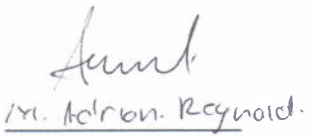 M. Adrian. Reynold.